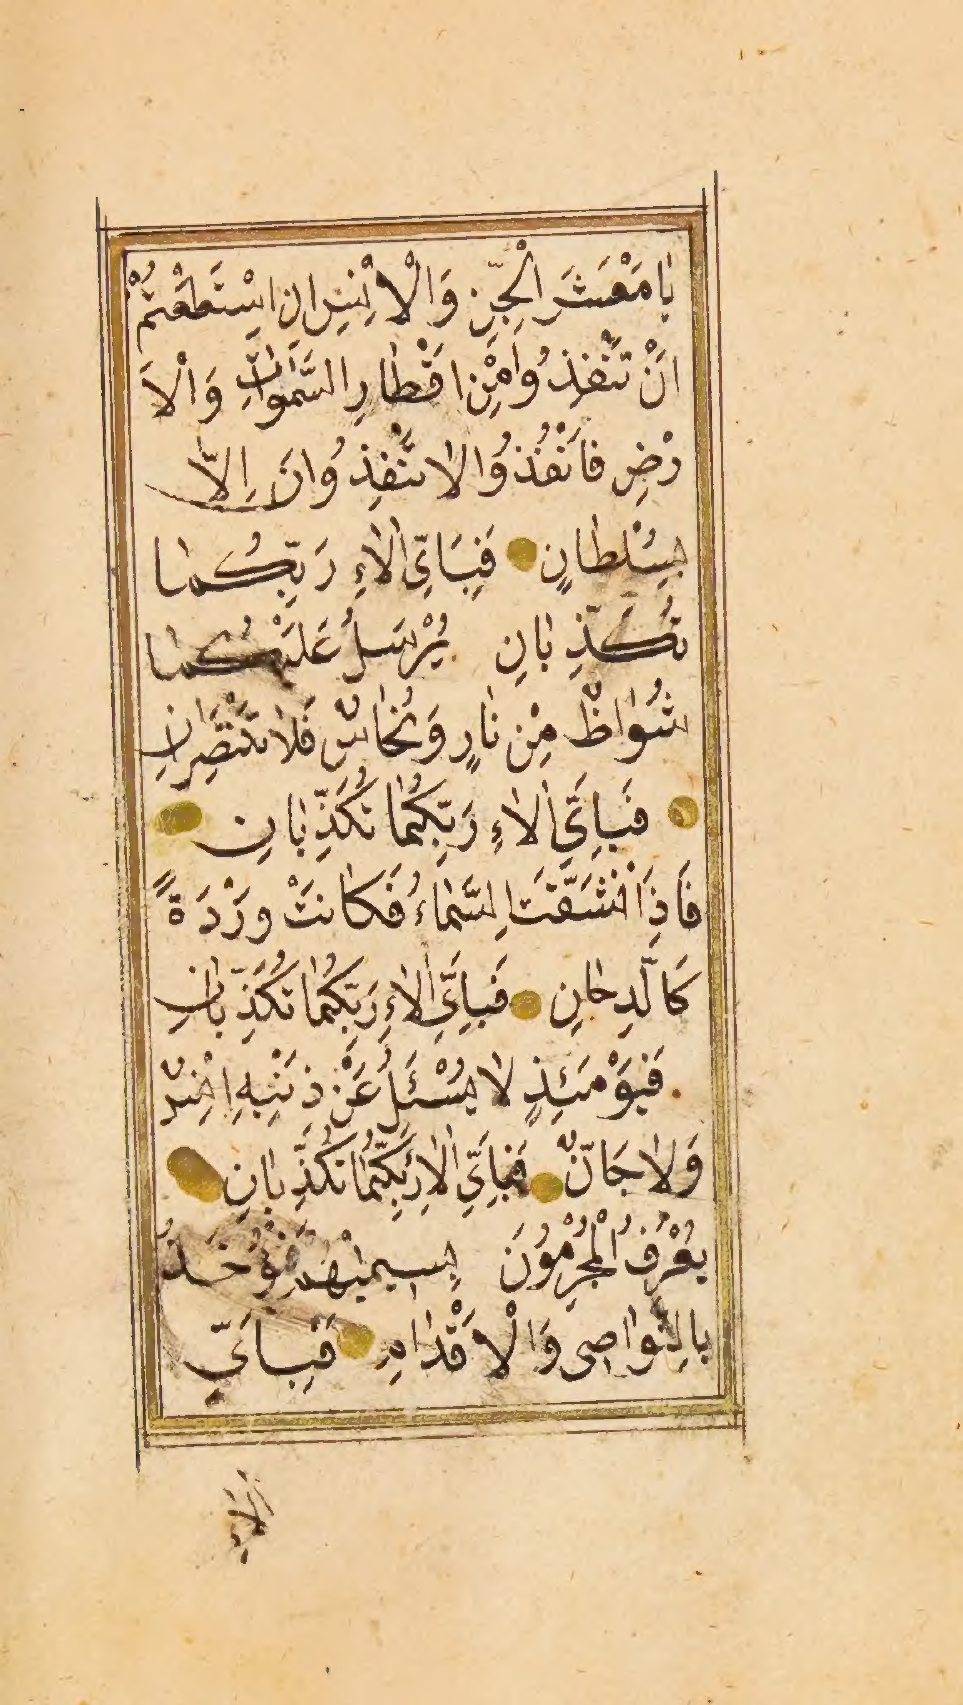 يٰا مَعْشَرَ الْجِنِّ وَالْاِنْسِ اِنِ اسْتَطَعْتُمْ
اَنْ تَنْفُذُوا مِنْ اَقْطٰارِ السَّمٰوٰاتِ وَالْاَ
رْضِ فَانْفُذُوا لٰا تَنْفُذُونَ اِلّٰا
بِسُلْطٰانٍ فَبِاَيِّ اٰلٰاءِ رَبِّكُمٰا
تُكَذِّبٰانِ يُرْسَلُ عَلَيْكُمٰا
شُوٰاظٌ مِنْ نٰارٍ وَنُحٰاسٌ فَلٰا تَنْتَصِرٰانِ
فَبِاَيِّ اٰلٰاءِ رَبِّكُمٰا تُكَذِّبٰانِ
فَاِذَا انْشَقَّتِ السَّمٰاءُ فَكٰانَتْ وَرْدَةً
كَالدِّهٰانِ فَبِاَيِّ اٰلٰاءِ رَبِّكُمٰا تُكَذِّبٰانِ
فَيَوْمَئِذٍ لٰا يُسْئَلُ عَنْ ذَنْبِهِ اِنْسٌ
وَلٰا جَانٌّ فَبِاَيِّ اٰلٰاءِ رَبِّكُمٰا تُكَذِّبٰانِ
يُعْرَفُ الْمُجْرِمُونَ بِسِيمٰيهُمْ فَيُؤْخَذُ
بِالنَّوٰاصِى وَالْاَقْدٰامِ فَبِاَيِّ
اٰلٰاءِ